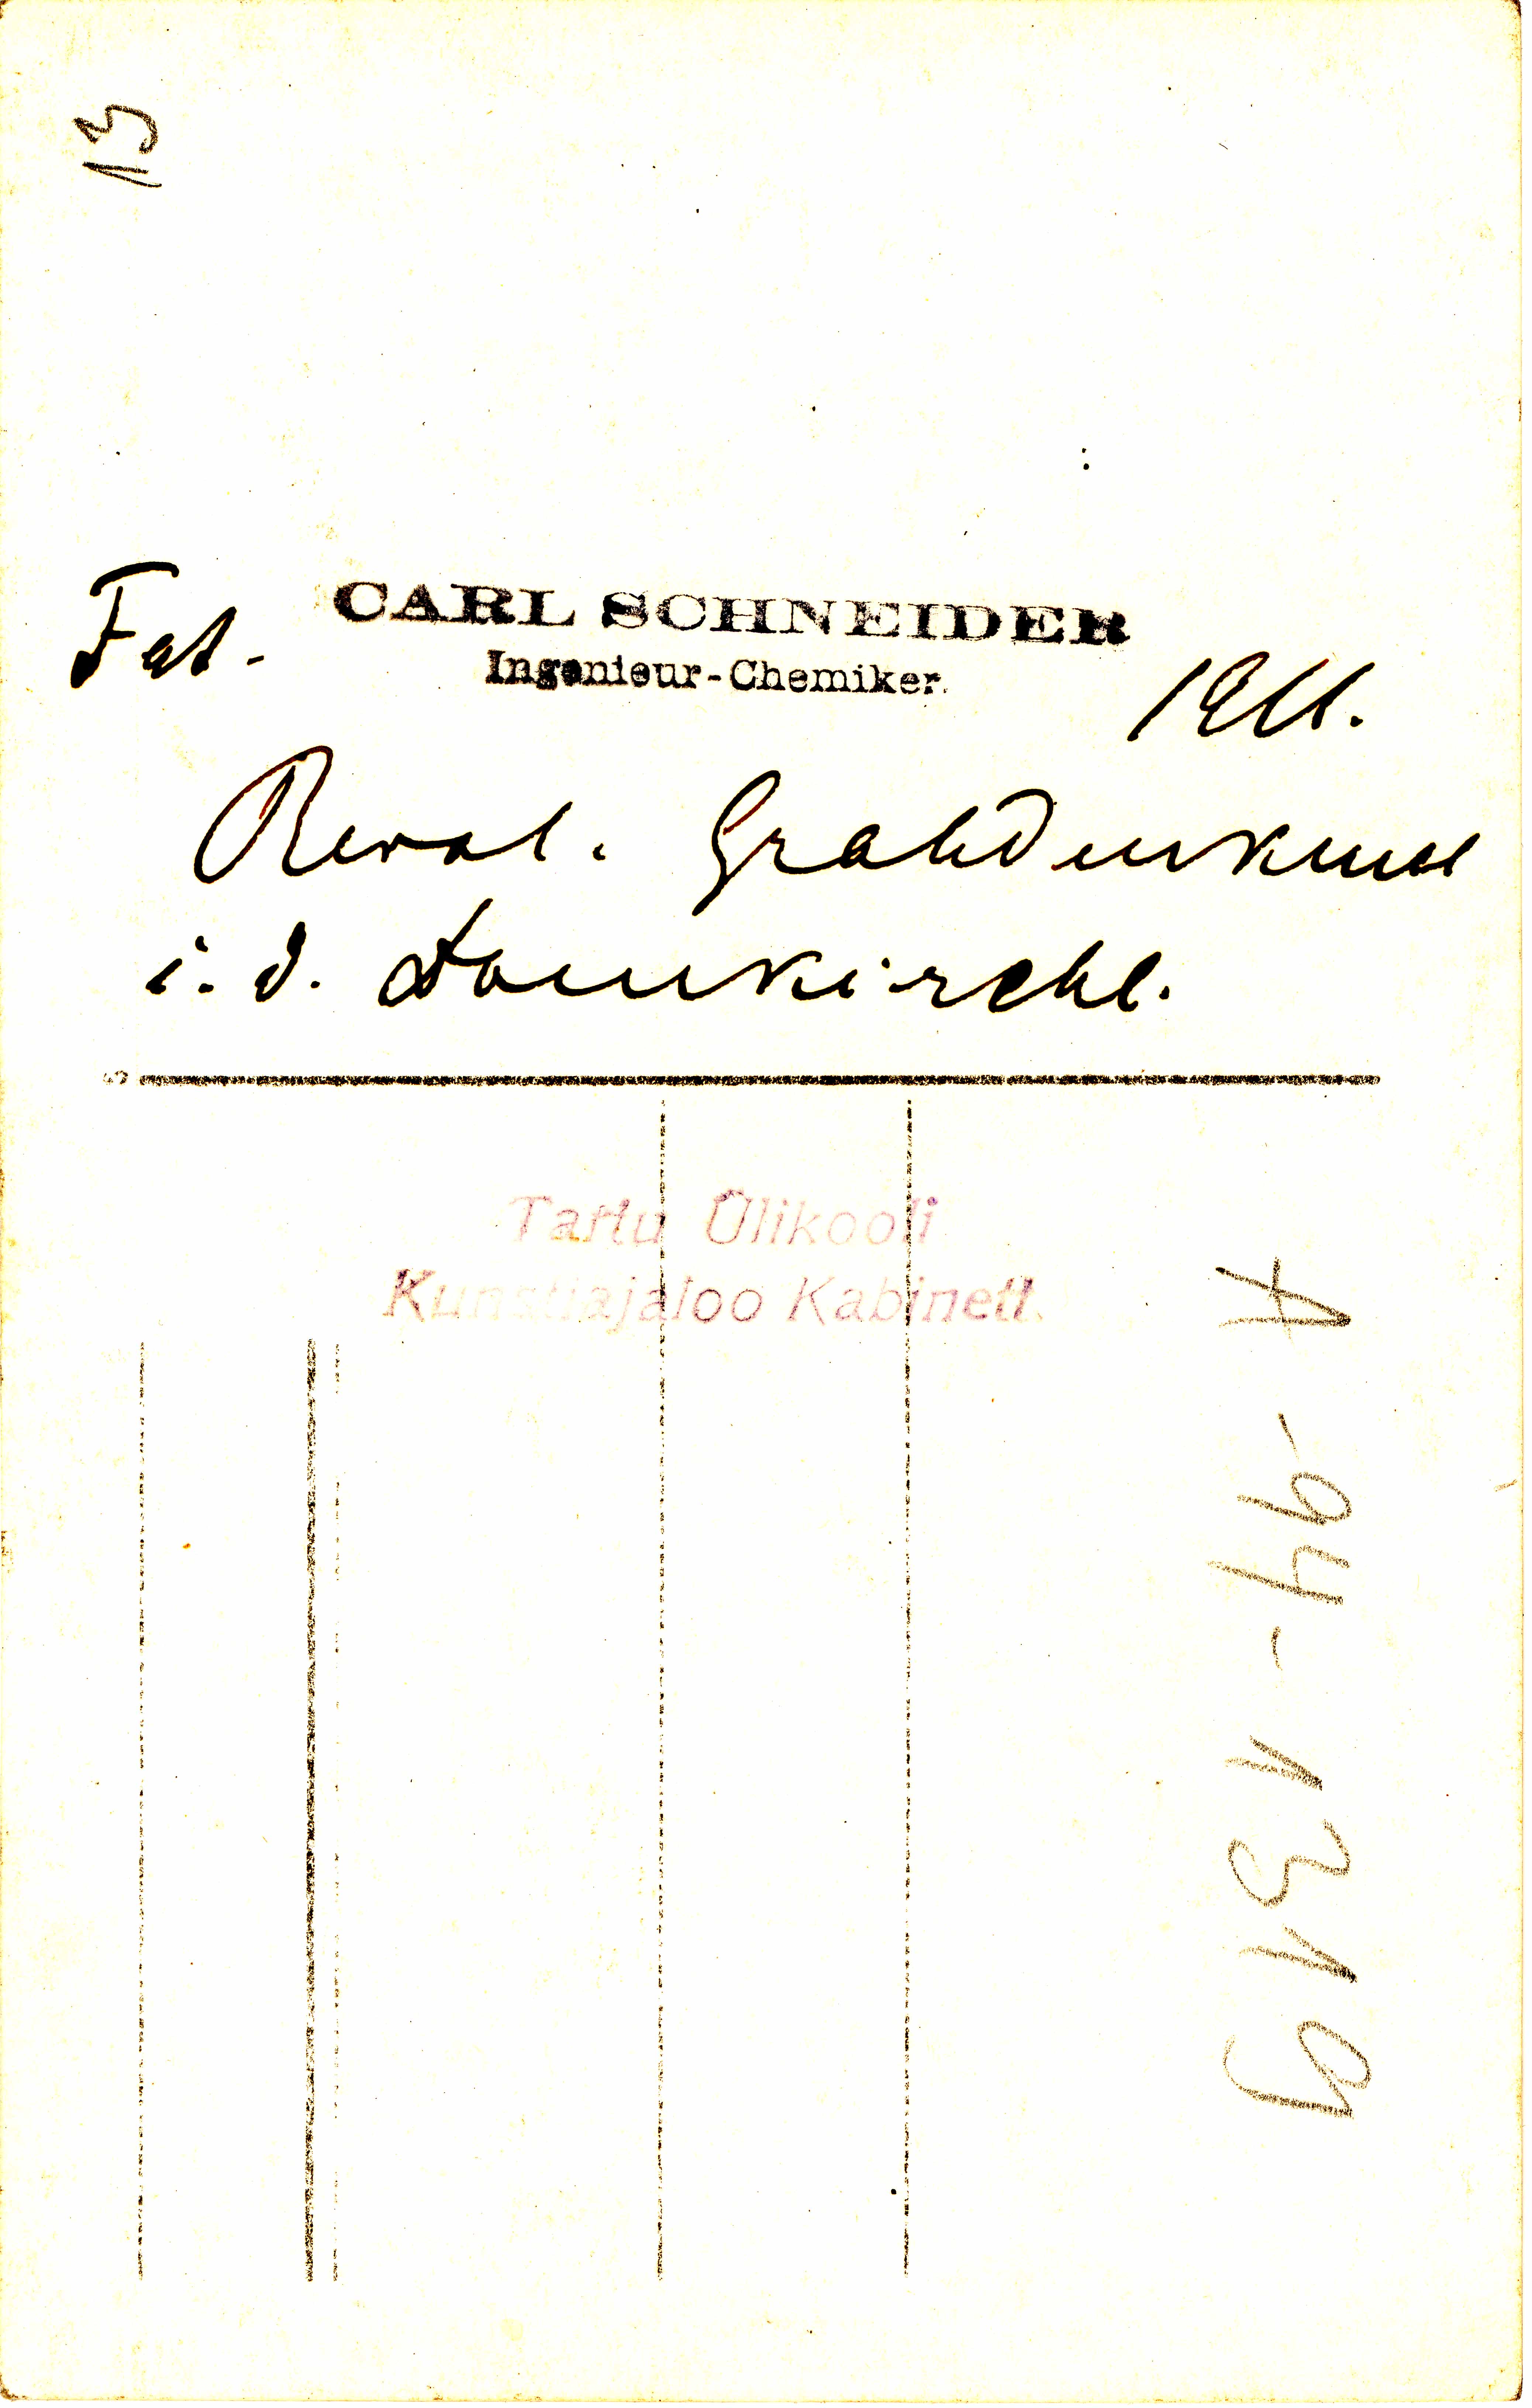 13
Fot. CARL SCHNEIDER
Ingenieur-Chemiker.
1911.
Reval. Grabdenkmal
i. d. Domkirche.
Tartu Ülikooli
Kunstiajaloo Kabinett.
A-94-1319